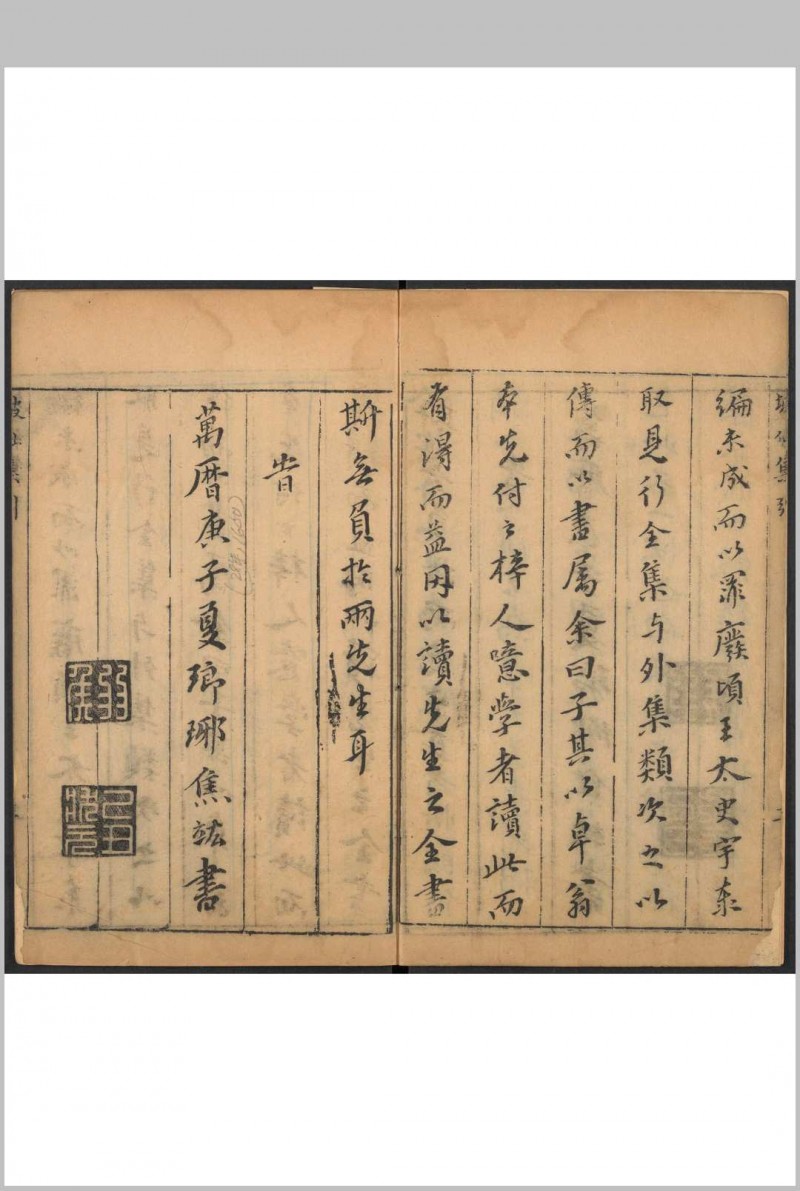 編未成而以罪廢頃王太史宇泰
取見行全集与外集類次之以
傳而以書屬余曰子其以卓翁
本先付之梓人噫學者讀此而
有得而益因以讀先生之全書
斯無負於兩先生耳
旹
萬曆庚子夏瑯琊焦竑書
(1600)
弱矦
己丑狀元